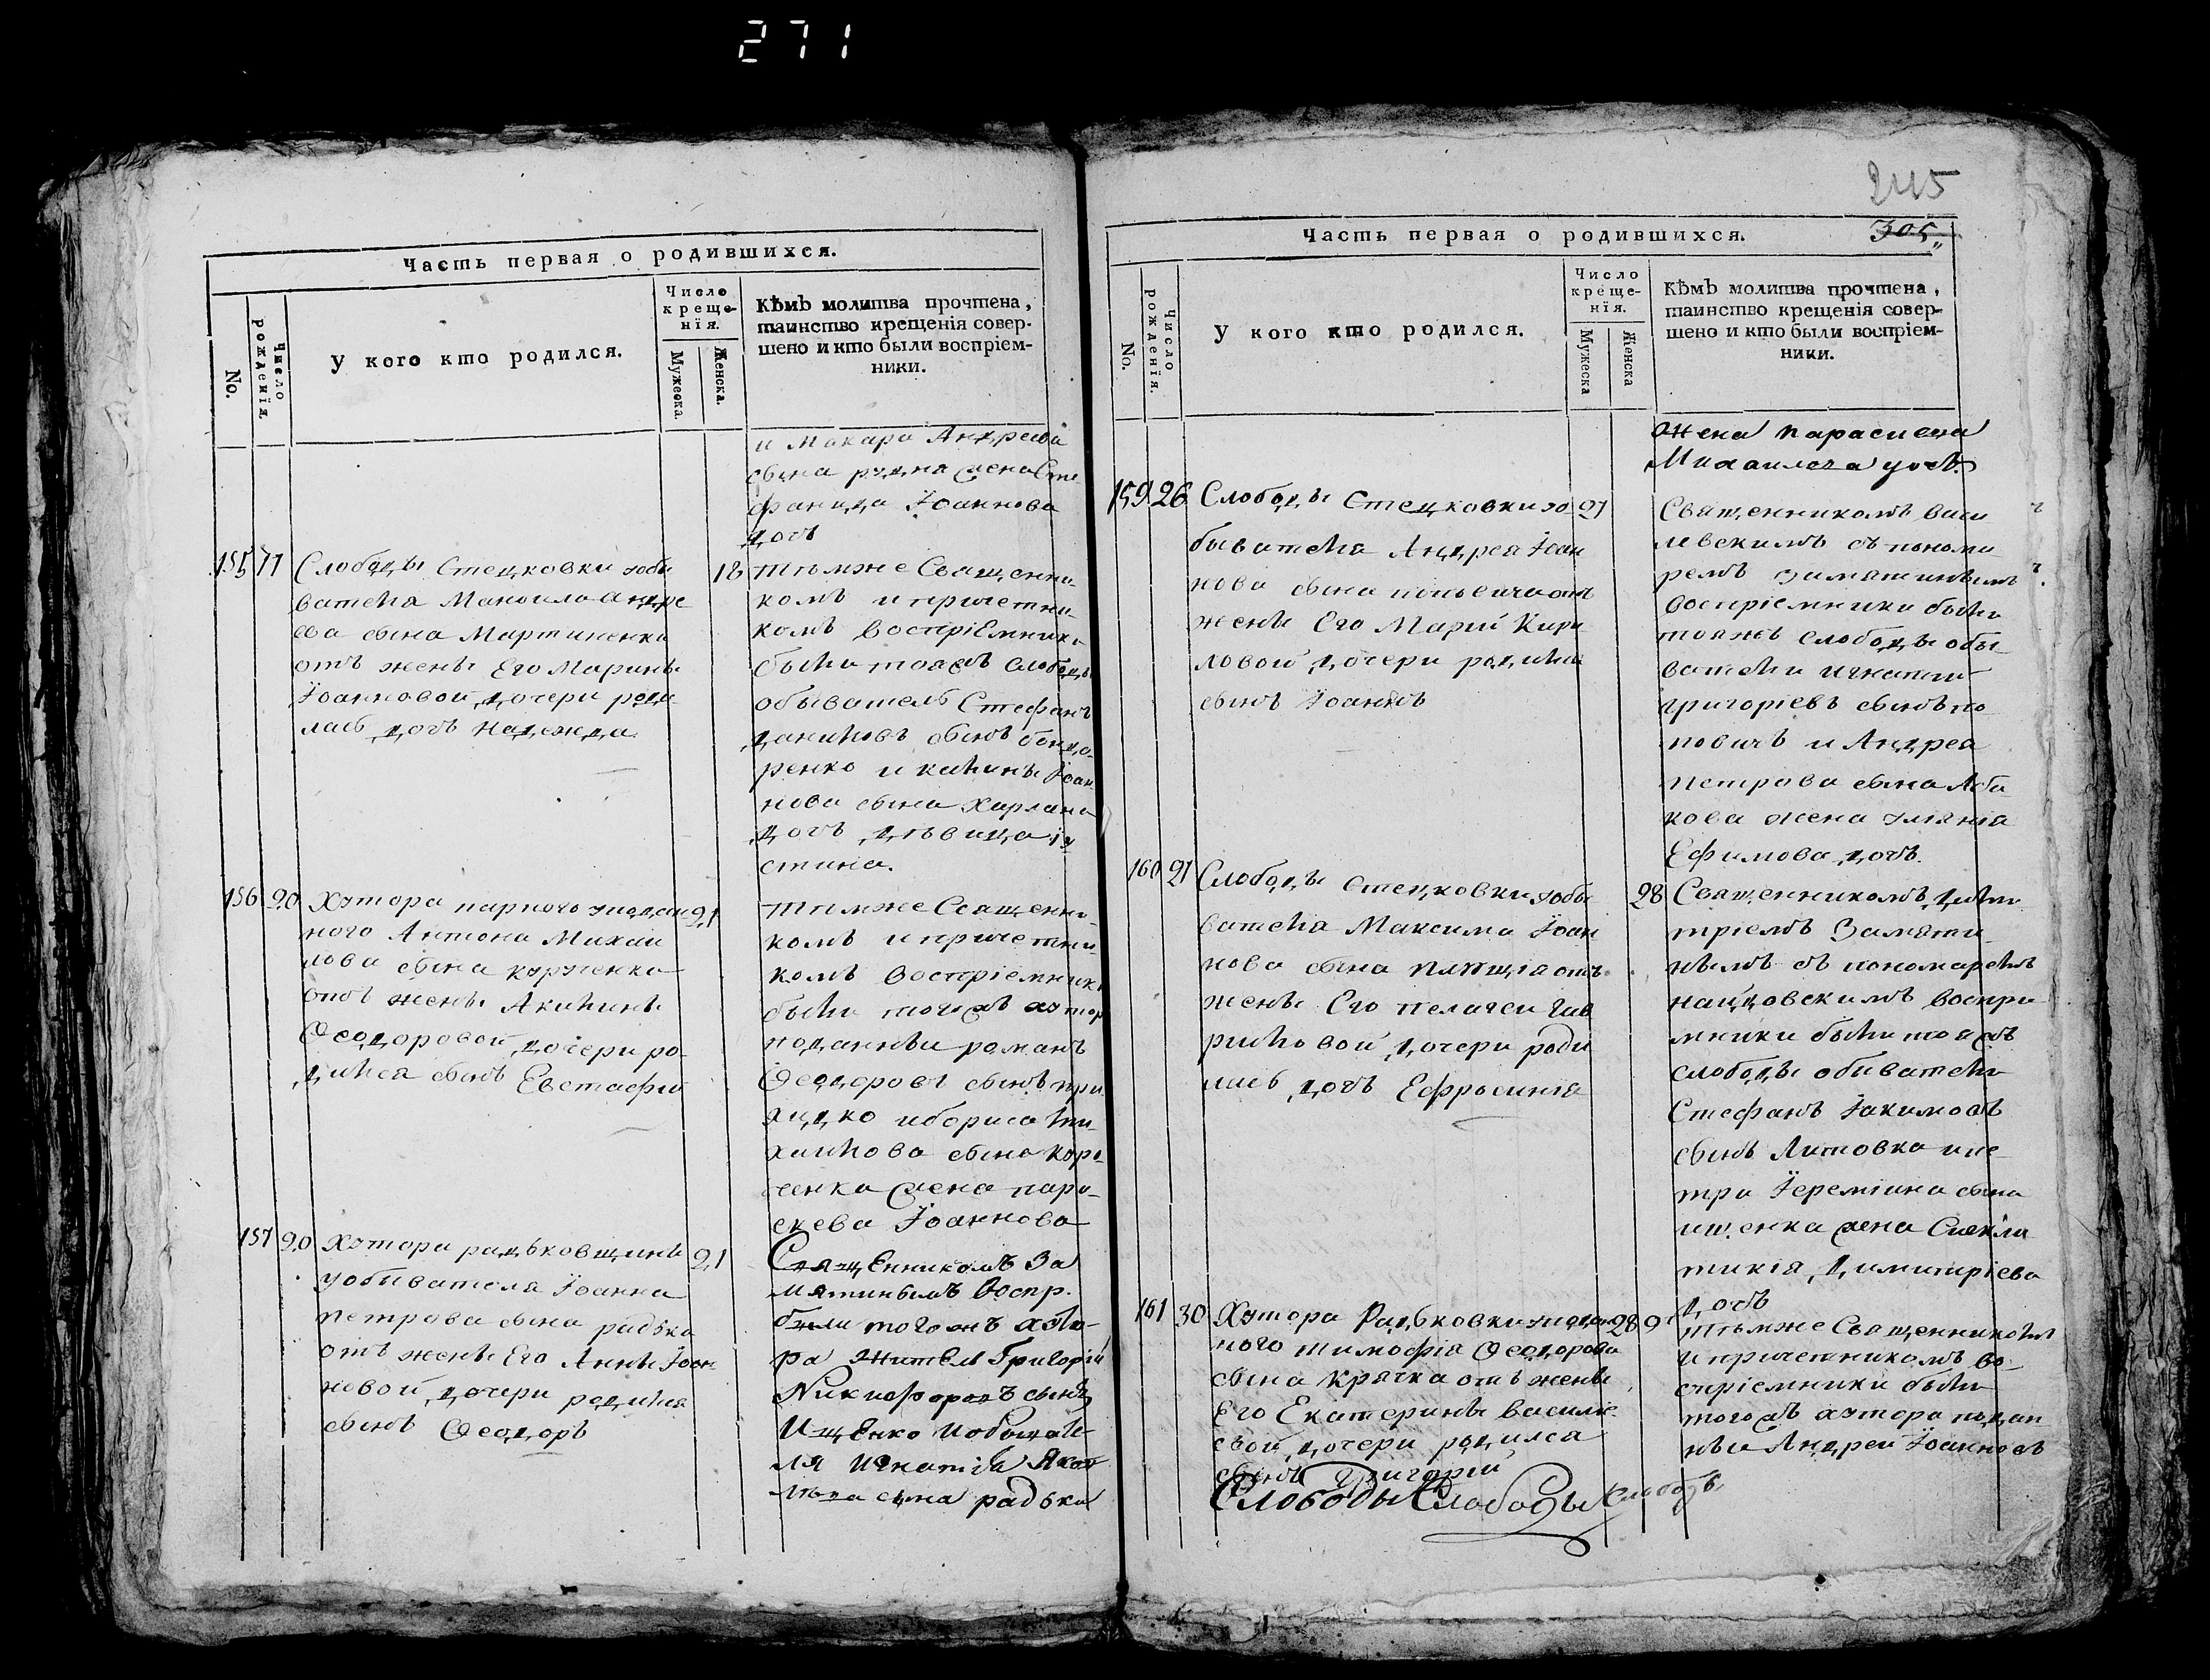 271
Часть первая о родившихся.
No.
Число рожденія.
У кого кто родился.
Число крещенія.
Мужеска.
Женска.
Кѣмъ молитва прочтена,
таинство крещенія совер-
шено и кто были воспріем-
ники.
и Макара Андреева
сына жена Сте
фанида Іоаннова
дочь
155 17 Слободы Стецковки уобы
вателя Мануила Андре
ева сына Мартиненка
отъ жены Его Марины
Іоанновой дочери роди
лась дочь Надежда.
18 тѣмже Священни-
комъ и причетни-
комъ воспріемники
были тояжъ слободы
обыватель Стефанъ
Даниловъ сынъ бонда
ренко и Іоан
нова сына Харлана
дочь дѣвица Іу
стина.
156 20 Хутора уподан
ного Антона Михаи
лова сына
отъ жены Акилины
Ѳеодоровой дочери ро-
дился сынъ Евстафій
21 тѣмже Священни-
комъ и причетни-
комъ воспріемники
были тогожъ хутор
поданныи романъ
Ѳеодоровъ сынъ при
ядко и бориса
сына
жена пара-
скева Іоаннова
157 20 Хутора радьковщини
уобивателя Іоанна
петрова сына радька
отъ жены Его Анны Іоан
новой дочери родился
сынъ Ѳеодоръ
21 Священникомъ За
мятинымъ Воспр.
были тогожъ хуто-
ра житель Григорій
Никифоровъ сынъ
Ищенко и обывате-
ля Игнатія Яков
лева сына радька
245
305
Часть первая о родившихся.
No.
Число рожденїя.
У кого кто родился.
Число креще-
нїя.
Мужеска
Женска
Кѣмъ молитва прочтена,
таинство крещенія совер-
шено и кто были воспріем-
ники.
жена параскева
Михаилова дочь
159 26 Слободы Стецковки уо
бывателя Андрея Іоан
нова сына поповича отъ
жены Его Маріи Кири
ловой дочери родился
сынъ Іоаннъ
27 Священникомъ Васи
левскимъ съ понома
ремъ Замятинымъ
воспріемники были
тояжъ слободы обы
ватели Игнатій
григоріевъ сынъ по
повичъ и Андрея
петрова сына
жена уліянія
Ефимова дочь.
160 27 Слободы Стецковки уобы
вателя Максима Іоан
нова сына отъ
жены Его пелагеи Гав
риловой дочери роди
лась дочь Ефросинія
28 Священникомъ Дими
тріемъ Замяти
нымъ съ пономаремъ
воспри
мники были тояжъ
слободы обиватели
Стефанъ Іакимовъ
сынъ Литовка и пе
тра Іереміина сына
жена
Димитріева
дочь
161 30 Хутора Радьковки упадан
ного тимофія Ѳеодорова
сына Крячка отъ жены
Его Екатерины василіе
вой дочери родился
сынъ Григорій
28 9 тѣмже Священникомъ
и причетникомъ во-
спріемники были
тогожъ хутора подан
ныи Андреи Іоанновъ
Слободы Слободы Слободы